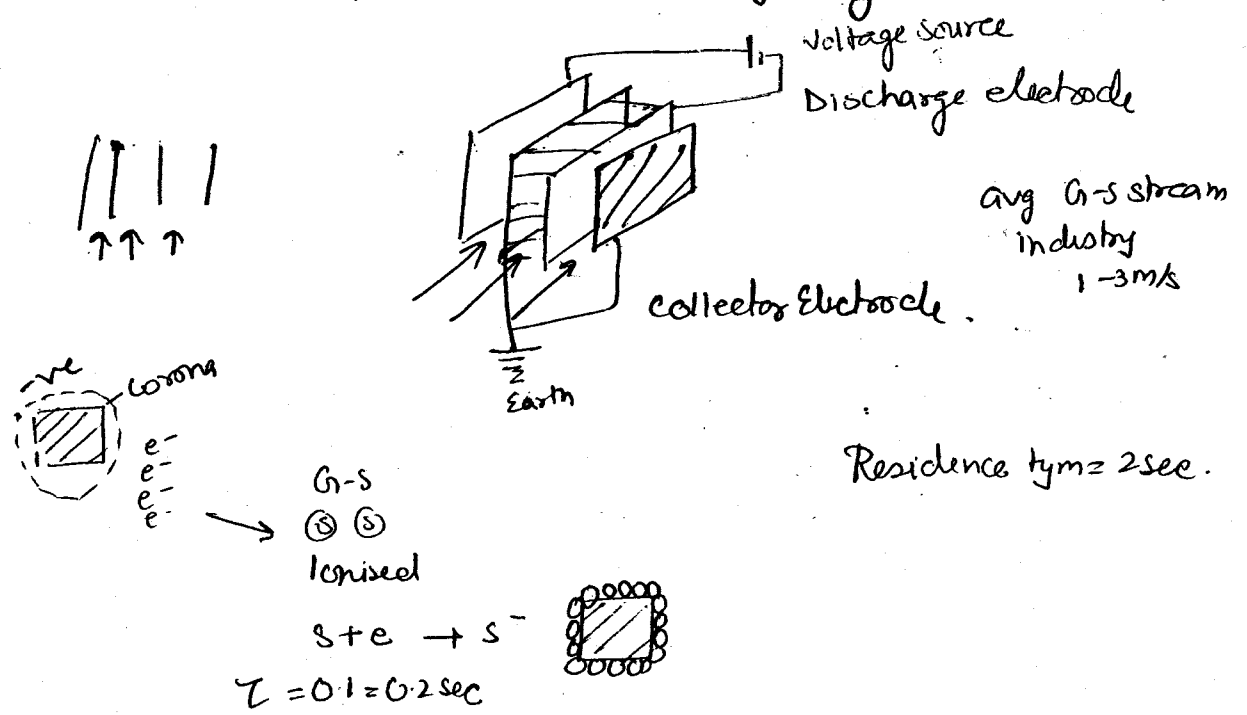 Voltage source
Discharge electrode
avg G-S stream
industry
1-3 m/s
Collector Electrode.
Earth
-ve
corona
e-
e-
e-
e-
G-S
S S
Ionised
S + e → S-
τ = 0.1 = 0.2 sec
Residence tym = 2 sec.